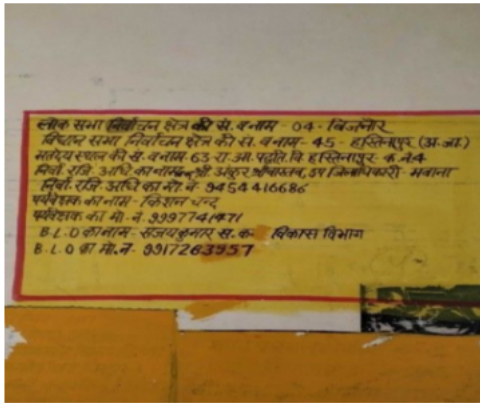 लोक सभा निर्वाचन क्षेत्र की सं. व नाम - 04 - बिजनौर
विधान सभा निर्वाचन क्षेत्र की सं. व नाम - 45 - हस्तिनापुर (अ.जा.)
मतदेय स्थल की सं. व नाम 63 रा.आ. पद्धति वि हस्तिनापुर क.नं.4
निर्वा. रजि. अधि का नाम श्री अंकुर श्रीवास्तव, उप जिलाधिकारी - मवाना
निर्वा. रजि. अधि का मो. नं. 9454416686
पर्यवेक्षक का नाम - किशन चन्द
पर्यवेक्षक का मो. नं. 9997741471
B.L.O का नाम - संजय कुमार स. क. विकास विभाग
B.L.O का मो. नं. 9917263957